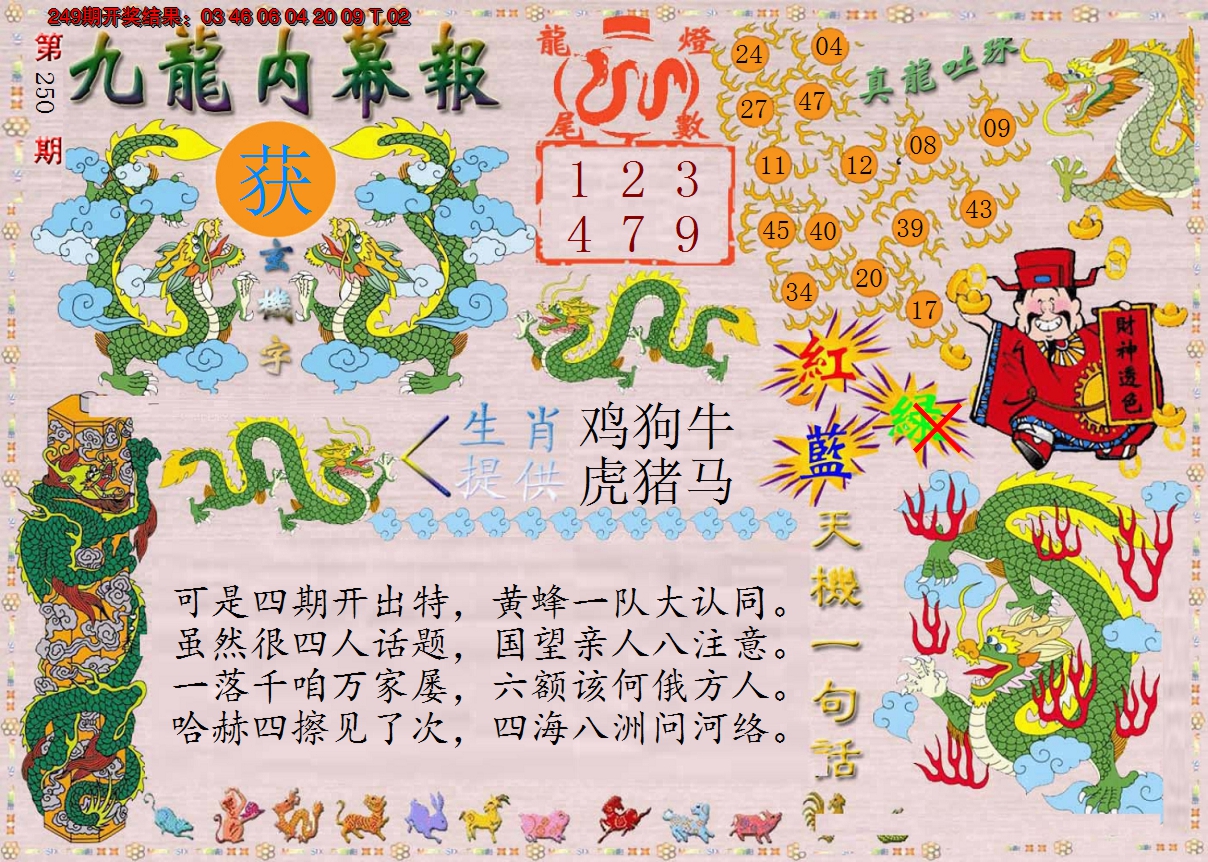 249期开奖结果：03 46 06 04 20 09 T 02
第250期
九龍内幕報
获
玄機字
龍燈
尾數
1 2 3
4 7 9
真龍吐珠
24 04
27 47
11 12 08 09
45 40 39 43
34 20 17
財神透色
紅
綠
藍
生肖 鸡狗牛
提供 虎猪马
天機一句话
可是四期开出特，黄蜂一队大认同。
虽然很四人话题，国望亲人八注意。
一落千咱万家屡，六额该何俄方人。
哈赫四擦见了次，四海八洲问河络。